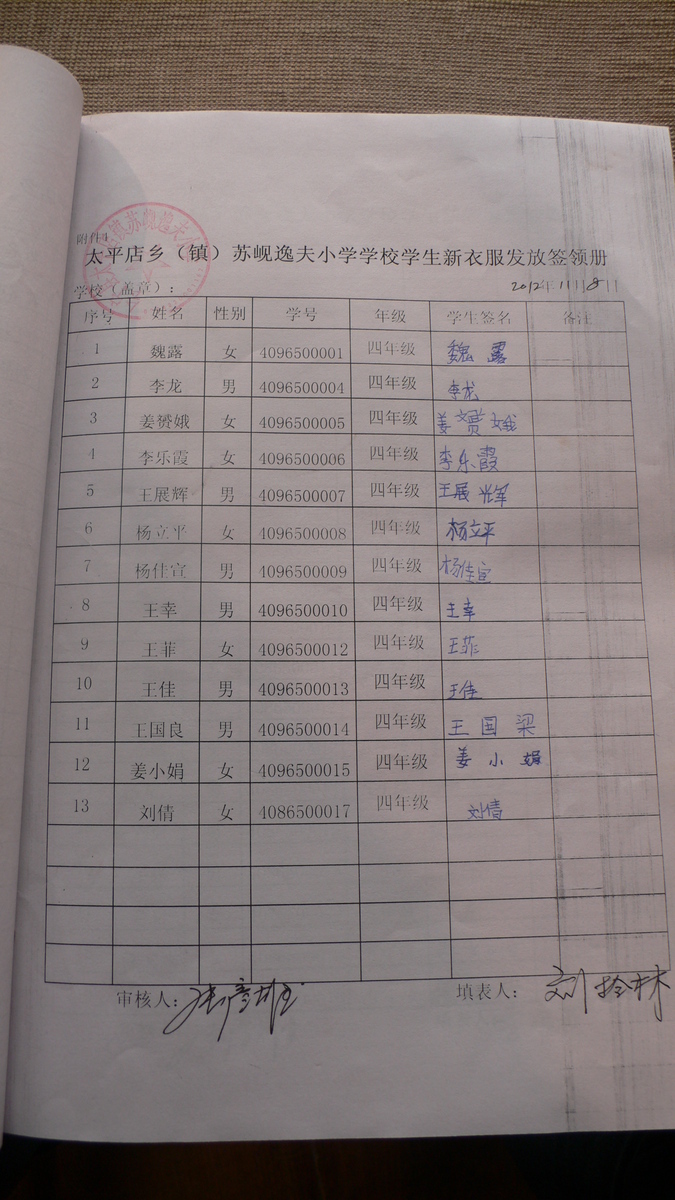 附件1
太平店乡（镇）苏岘逸夫小学学校学生新衣服发放签领册
学校（盖章）： 2012年11 8
序号 姓名 性别 学号 年级 学生签名 备注
1 魏露 女 4096500001 四年级 魏露
2 李龙 男 4096500004 四年级 李龙
3 姜赟娥 女 4096500005 四年级 姜赟娥
4 李乐霞 女 4096500006 四年级 李乐霞
5 王展辉 男 4096500007 四年级 王展辉
6 杨立平 女 4096500008 四年级 杨立平
7 杨佳宣 男 4096500009 四年级 杨佳宣
8 王幸 男 4096500010 四年级 王幸
9 王菲 女 4096500012 四年级 王菲
10 王佳 男 4096500013 四年级 王佳
11 王国良 男 4096500014 四年级 王国梁
12 姜小娟 女 4096500015 四年级 姜小娟
13 刘倩 女 4086500017 四年级 刘倩
审核人： 填表人：刘